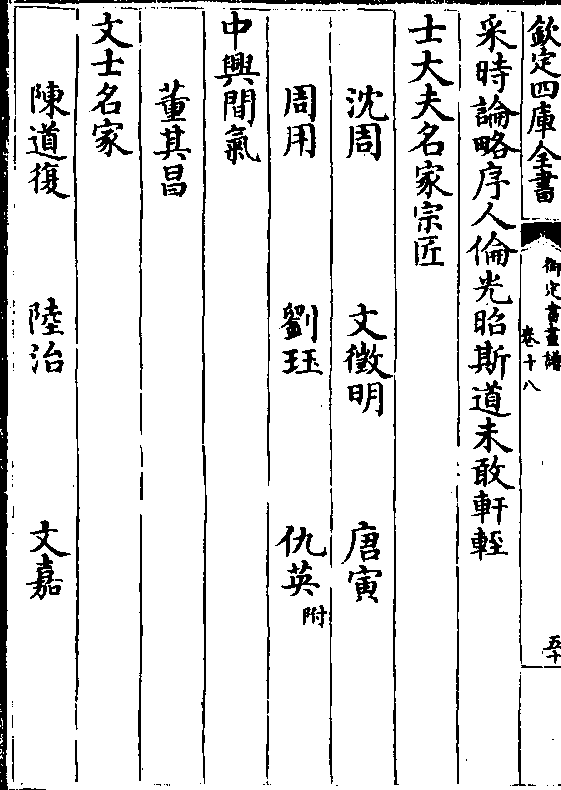 欽定四庫全書
御定書畫譜
卷十八
五十
采時論略序人倫光昭斯道未敢軒輊
士大夫名家宗匠
沈周 文徵明 唐寅
周用 劉珏 仇英附
中興閒氣
董其昌
文士名家
陳道復 陸治 文嘉